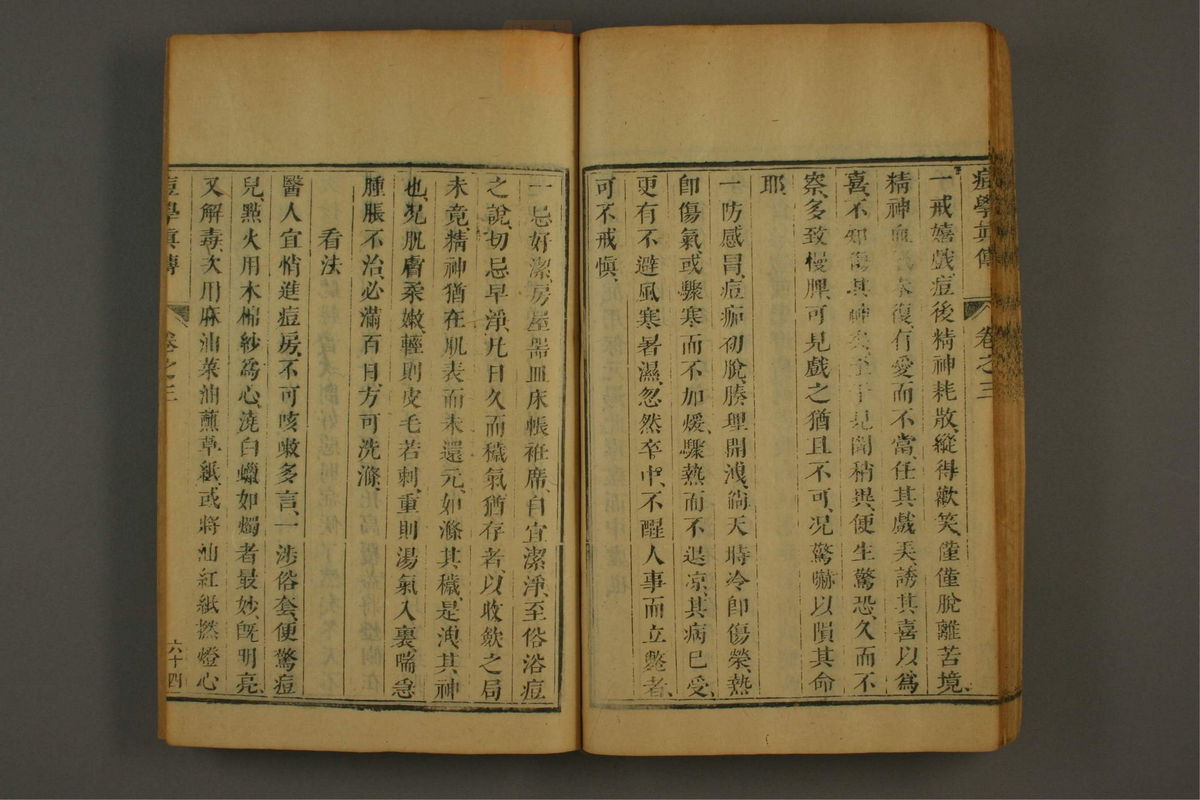 痘學眞傳 卷之三
一戒嬉戲痘後精神耗散、縱得歡笑、僅僅脫離苦境、
精神血 復、有愛而不當、任其戲 誘其喜以爲
喜、不知傷其神 至于見聞稍異、便生驚恐、久而不
察、多致慢脾、可見戲之猶且不可、况驚嚇以隕其命
耶、
一防感冒、痘痂初脫、腠理開洩、倘天時冷卽傷榮、熱
卽傷氣、或驟寒而不加煖、驟熱而不退凉、其病已受、
更有不避風寒暑濕、忽然卒中、不醒人事而立斃者、
可不戒愼、
一忌好潔房屋器皿床帳袵席、自宜潔淨、至俗浴痘
之說、切忌早淨、凡日久而穢氣猶存者、以收斂之局
未竟、精神猶在肌表而未還元、如滌其穢、是洩其神
也、况肌膚柔嫩、輕則皮毛若刺、重則湯氣入裏、喘急
腫脹不治、必滿百日、方可洗滌、
看法
醫人宜悄進痘房、不可咳嗽多言、一涉俗套、便驚痘
兒、點火用木棉紗爲心、澆白蠟如燭者最妙、旣明亮、
又解毒、次用麻油菜油蘸草紙、或將油紅紙撚燈心
痘學眞傳 卷之三 六十四